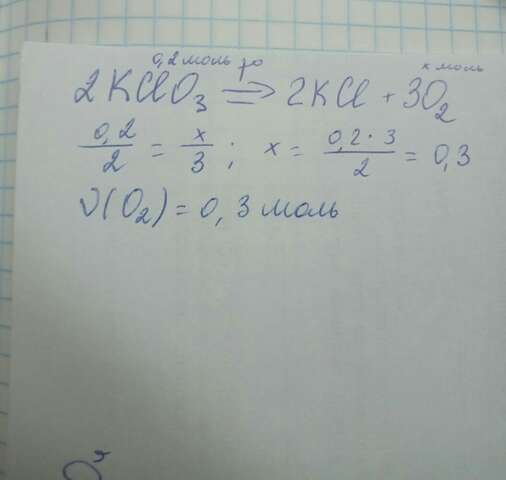 0,2 моль t° x моль
2KClO₃ ⇒ 2KCl + 3O₂
0,2/2 = x/3 ; x = 0,2·3/2 = 0,3
ν(O₂) = 0,3 моль